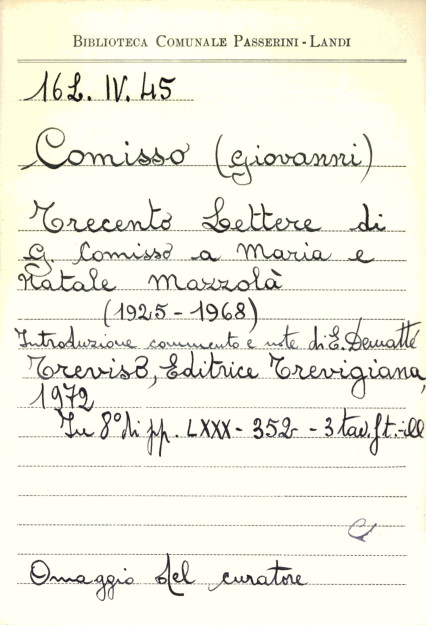 BIBLIOTECA COMUNALE PASSERINI - LANDI
16L. IV. 45
Comisso (Giovanni)
Trecento Lettere di
G. Comisso a Maria e
Natale Mazzolà
(1925 - 1968)
Introduzione commento e note di E. Demattè
Treviso, Editrice Trevigiana,
1972
In 8° di pp. LXXX - 352 - 3 tav. f.t. - ill
Omaggio del curatore